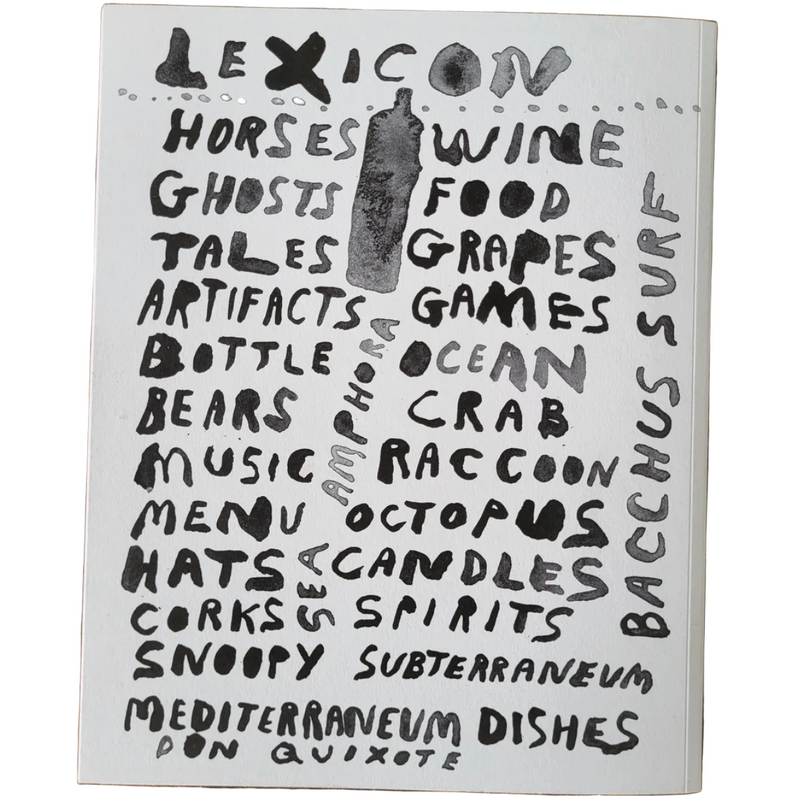 LEXICON
HORSES WINE
GHOSTS FOOD
TALES GRAPES
ARTIFACTS GAMES
BOTTLE OCEAN
BEARS CRAB
MUSIC RACCOON
MENU OCTOPUS
HATS CANDLES
CORKS SPIRITS
SNOOPY SUBTERRANEUM
MEDITERRANEUM DISHES
DON QUIXOTE
AMPHORA
SEA
BACCHUS SURF